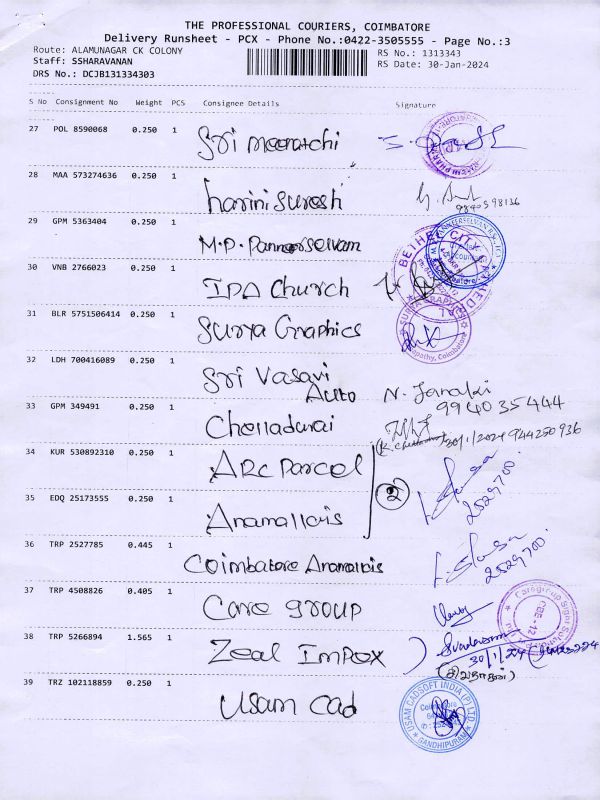 THE PROFESSIONAL COURIERS, COIMBATORE
Delivery Runsheet - PCX - Phone No.:0422-3505555 - Page No.:3
Route: ALAMUNAGAR CK COLONY RS No.: 1313343
Staff: SSHARAVANAN RS Date: 30-Jan-2024
DRS No.: DCJB131334303
S No Consignment No Weight PCS Consignee Details Signature
27 POL 8590068 0.250 1 Sri meenatchi
28 MAA 573274636 0.250 1 harini suresh
9840598136
29 GPM 5363404 0.250 1 M.P. Pannerselvam
30 VNB 2766023 0.250 1 IPA Church
BETHEL CITY
31 BLR 5751506414 0.250 1 Surya Graphics
SURYA GRAPHICS
Coimbatore
32 LDH 700416089 0.250 1 Sri Vasavi
Auto N. Janaki
994035444
33 GPM 349491 0.250 1 Chelladurai
30/1/2024 944250936
34 KUR 530892310 0.250 1 ARC Parcel
2
2529700
35 EDQ 25173555 0.250 1 Anamallais
36 TRP 2527785 0.445 1 Coimbatore Anamallais
2529700
37 TRP 4508826 0.405 1 Care group
CBE-12
38 TRP 5266894 1.565 1 Zeal Impex
30/1/24
(சிவநாதன்)
39 TRZ 102118859 0.250 1 Usam Cad
USAM CADSOFT INDIA (P) LTD
Coimbatore
GANDHIPURAM